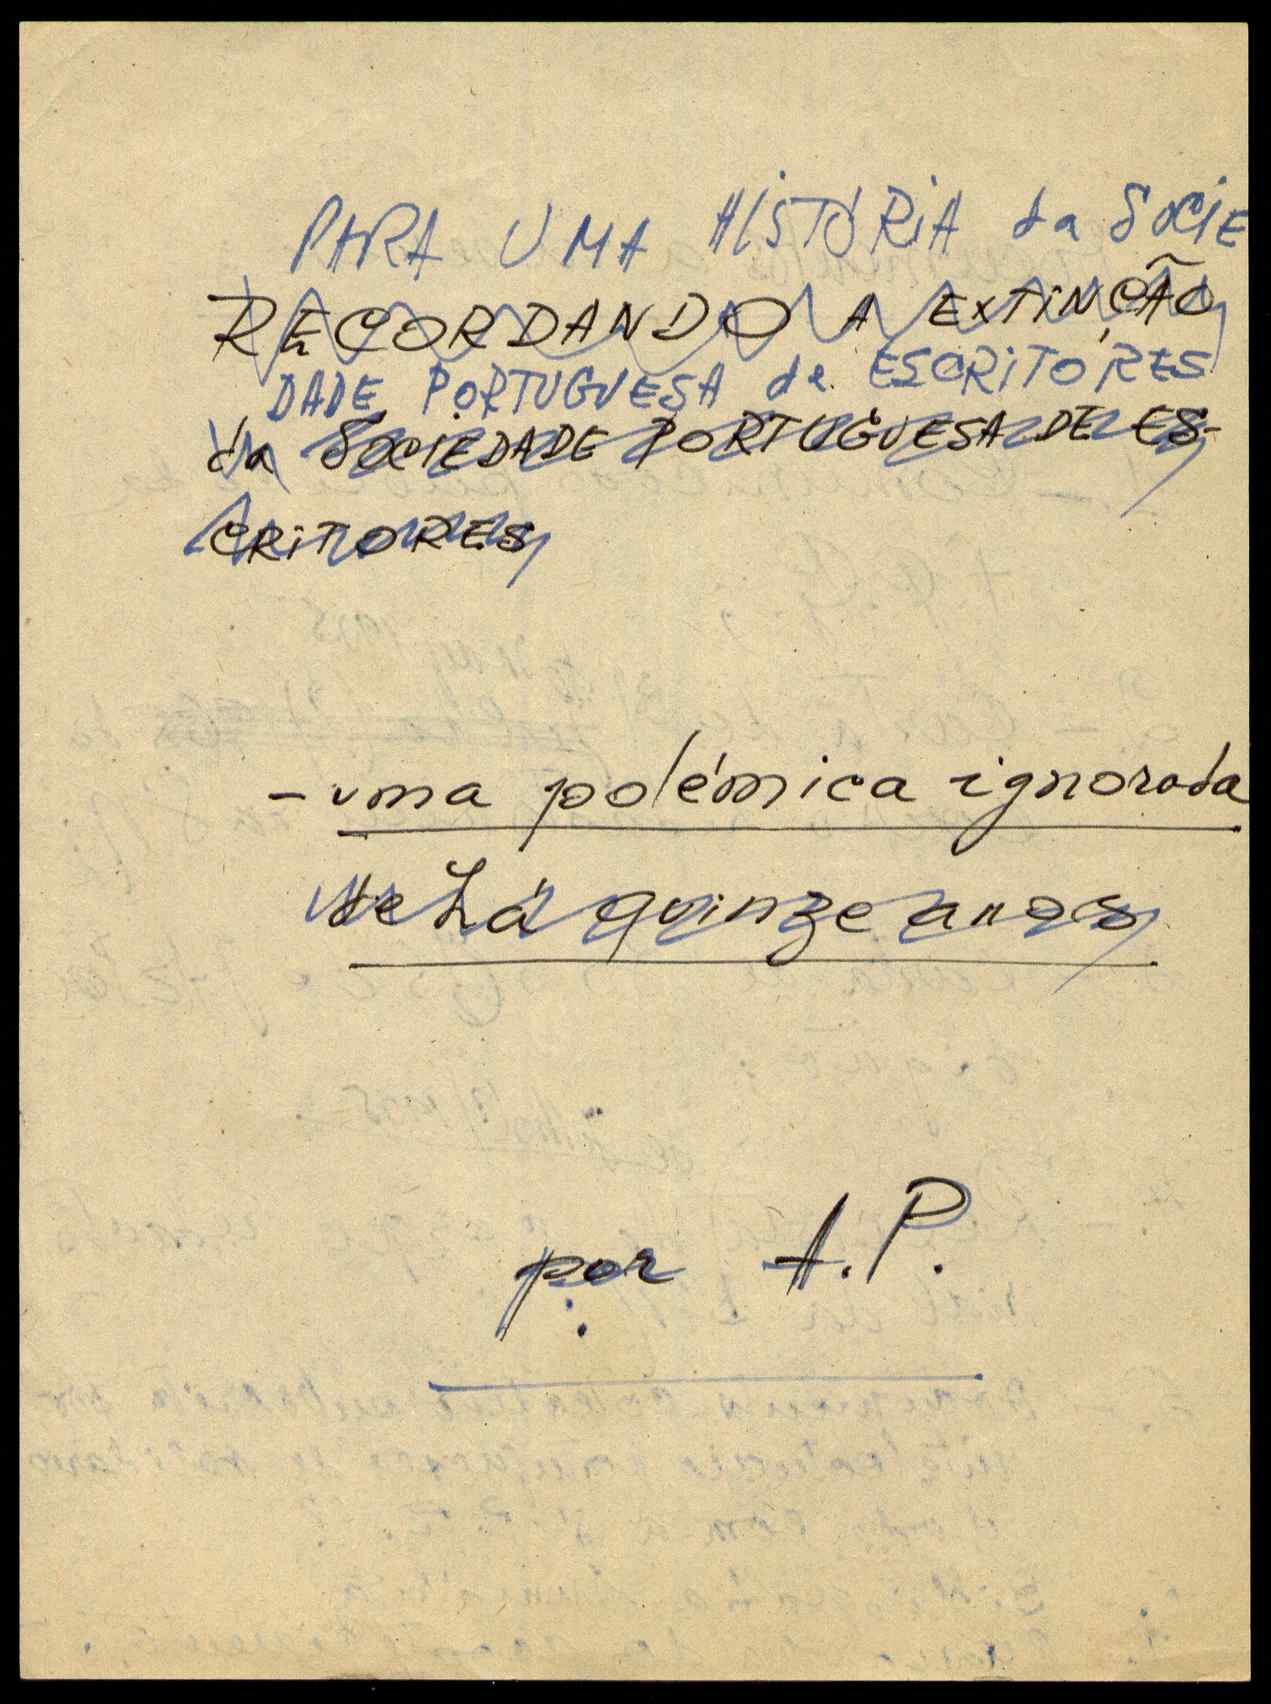 PARA UMA HISTÓRIA da SOCIE
RECORDANDO A EXTINÇÃO
DADE PORTUGUESA de ESCRITORES
da SOCIEDADE PORTUGUESA DE ES-
CRITORES
- uma polémica ignorada
de há quinze anos
por A.P.